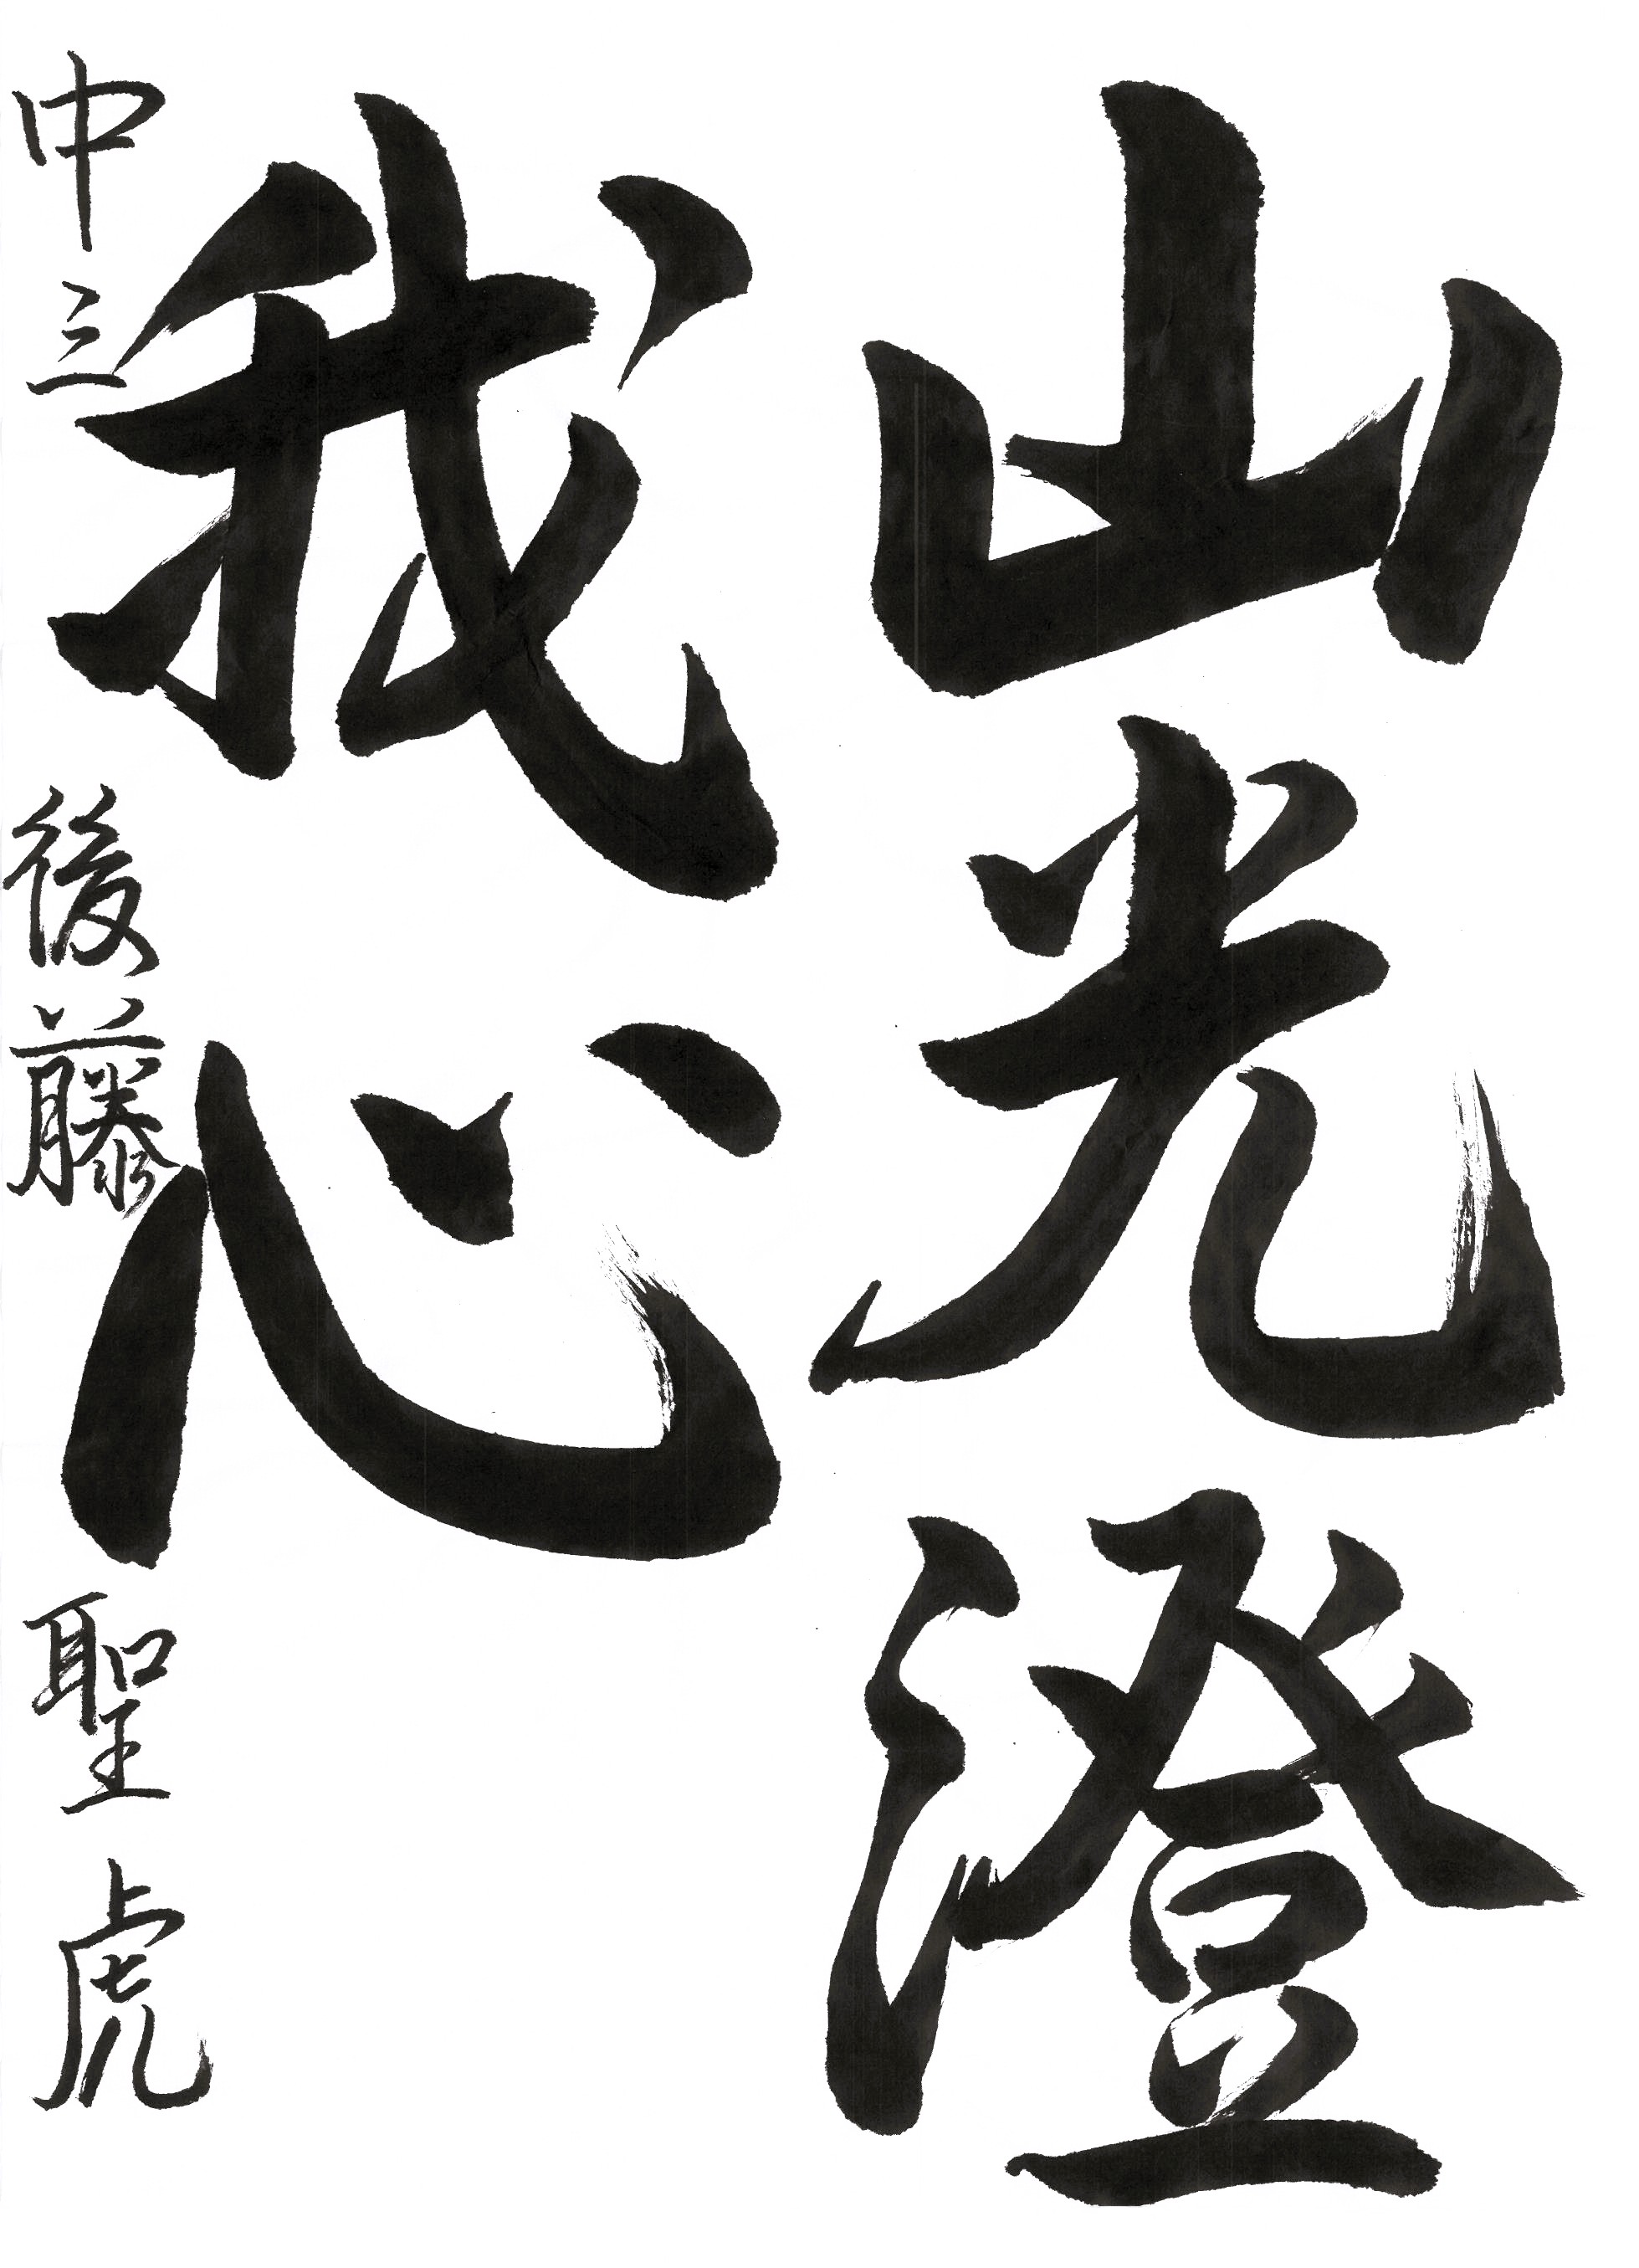 山光澄
我心
中三 後藤聖虎